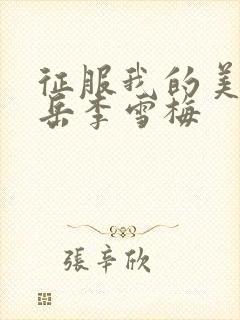 征服我的美
岳李雪梅
張辛欣